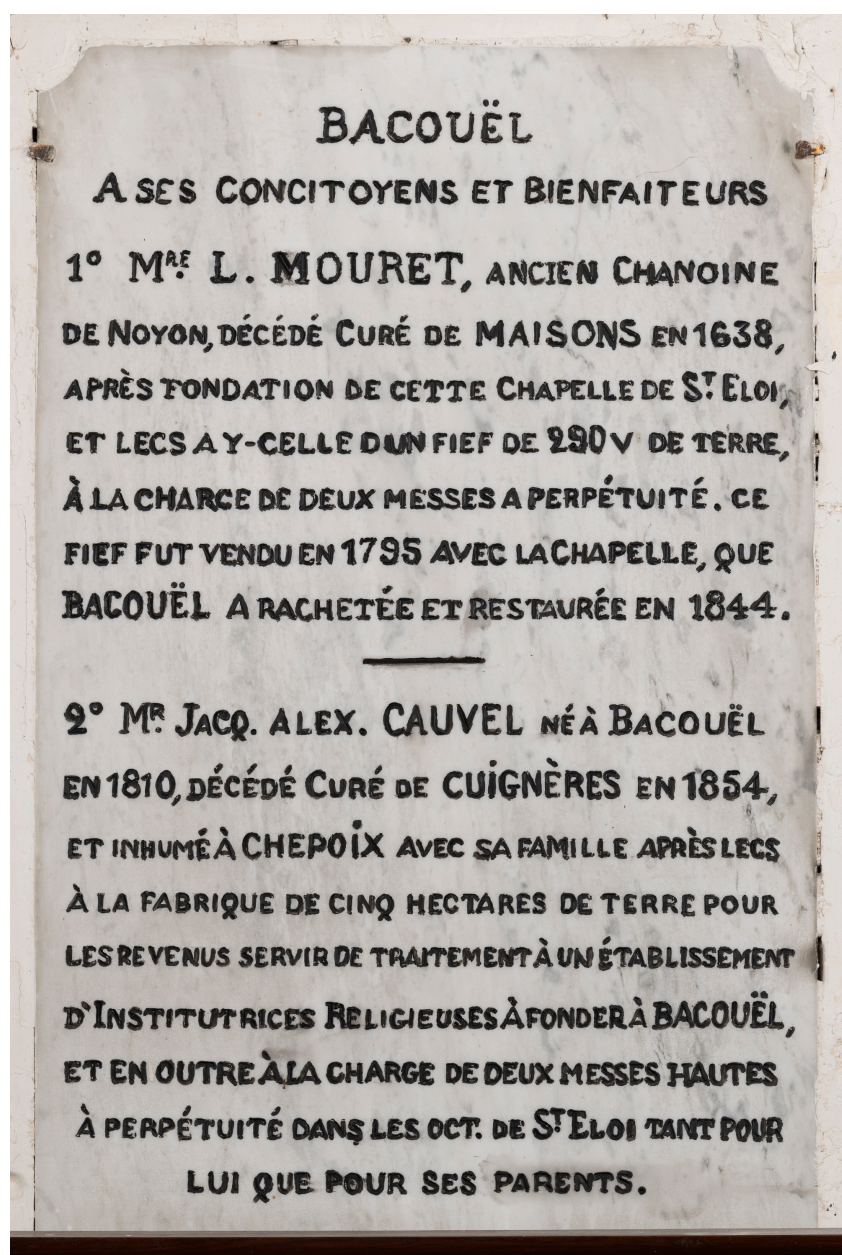 BACOUËL
A SES CONCITOYENS ET BIENFAITEURS
1° MRE L. MOURET, ANCIEN CHANOINE
DE NOYON, DÉCÉDÉ CURÉ DE MAISONS EN 1638,
APRÈS FONDATION DE CETTE CHAPELLE DE ST ELOI,
ET LECS A Y-CELLE D'UN FIEF DE 290 V DE TERRE,
À LA CHARCE DE DEUX MESSES A PERPÉTUITÉ. CE
FIEF FUT VENDU EN 1795 AVEC LA CHAPELLE, QUE
BACOUËL A RACHETÉE ET RESTAURÉE EN 1844.
2° MR JACQ. ALEX. CAUVEL NÉ À BACOUËL
EN 1810, DÉCÉDÉ CURÉ DE CUIGNÈRES EN 1854,
ET INHUMÉ À CHEPOIX AVEC SA FAMILLE APRÈS LECS
À LA FABRIQUE DE CINQ HECTARES DE TERRE POUR
LES REVENUS SERVIR DE TRAITEMENT À UN ÉTABLISSEMENT
D'INSTITUTRICES RELIGIEUSES À FONDER À BACOUËL,
ET EN OUTRE À LA CHARGE DE DEUX MESSES HAUTES
À PERPÉTUITÉ DANS LES OCT. DE ST ELOI TANT POUR
LUI QUE POUR SES PARENTS.